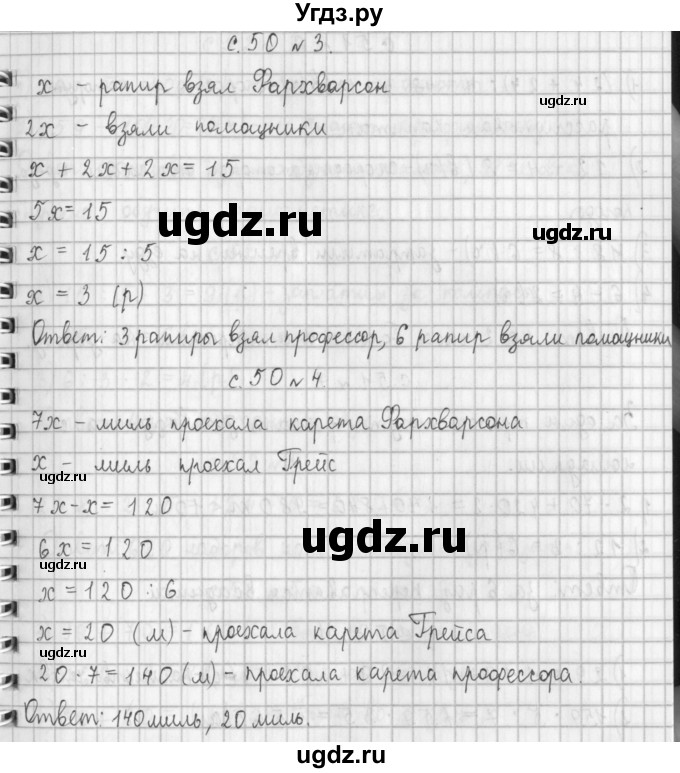 Угдз.ру
с. 50 № 3.
x – рапир взял Фархварсон
ugdz.ru
2x – взяли помощники
x + 2x + 2x = 15
5x = 15
ugdz.ru
ugdz.ru
x = 15 : 5
x = 3 (р)
Ответ: 3 рапиры взял профессор, 6 рапир взяли помощники
с. 50 № 4.
7x – миль проехала карета Фархварсона
x – миль проехал Грейс
ugdz.ru
ugdz.ru
7x - x = 120
6x = 120
ugdz.ru
x = 120 : 6
x = 20 (м) – проехала карета Грейса
20 · 7 = 140 (м) – проехала карета профессора.
ugdz.ru
ugdz.ru
Ответ: 140 миль, 20 миль.
ugdz.ru